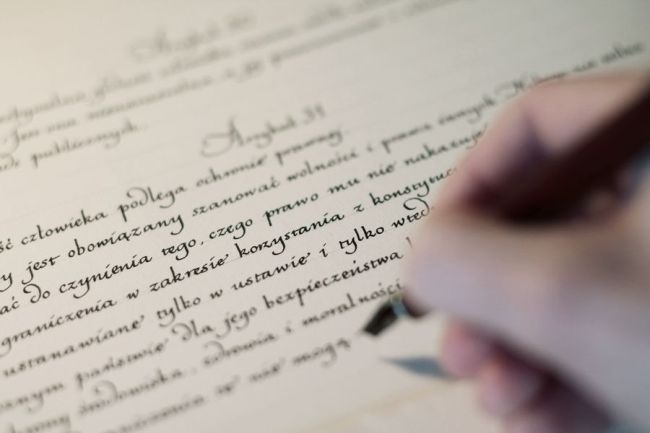 Artykuł 30
Jest ona nienaruszalna, a jej
publicznych.
Artykuł 31
ść człowieka podlega ochronie prawnej.
y jest obowiązany szanować wolności i prawa innych. Nikogo nie wolno
ać do czynienia tego, czego prawo mu nie nakazuje
graniczenia w zakresie korzystania z konstytuc
ustanawiane tylko w ustawie i tylko wted
znym państwie dla jego bezpieczeństwa
środowiska, zdrowia i moralności
te nie mogą